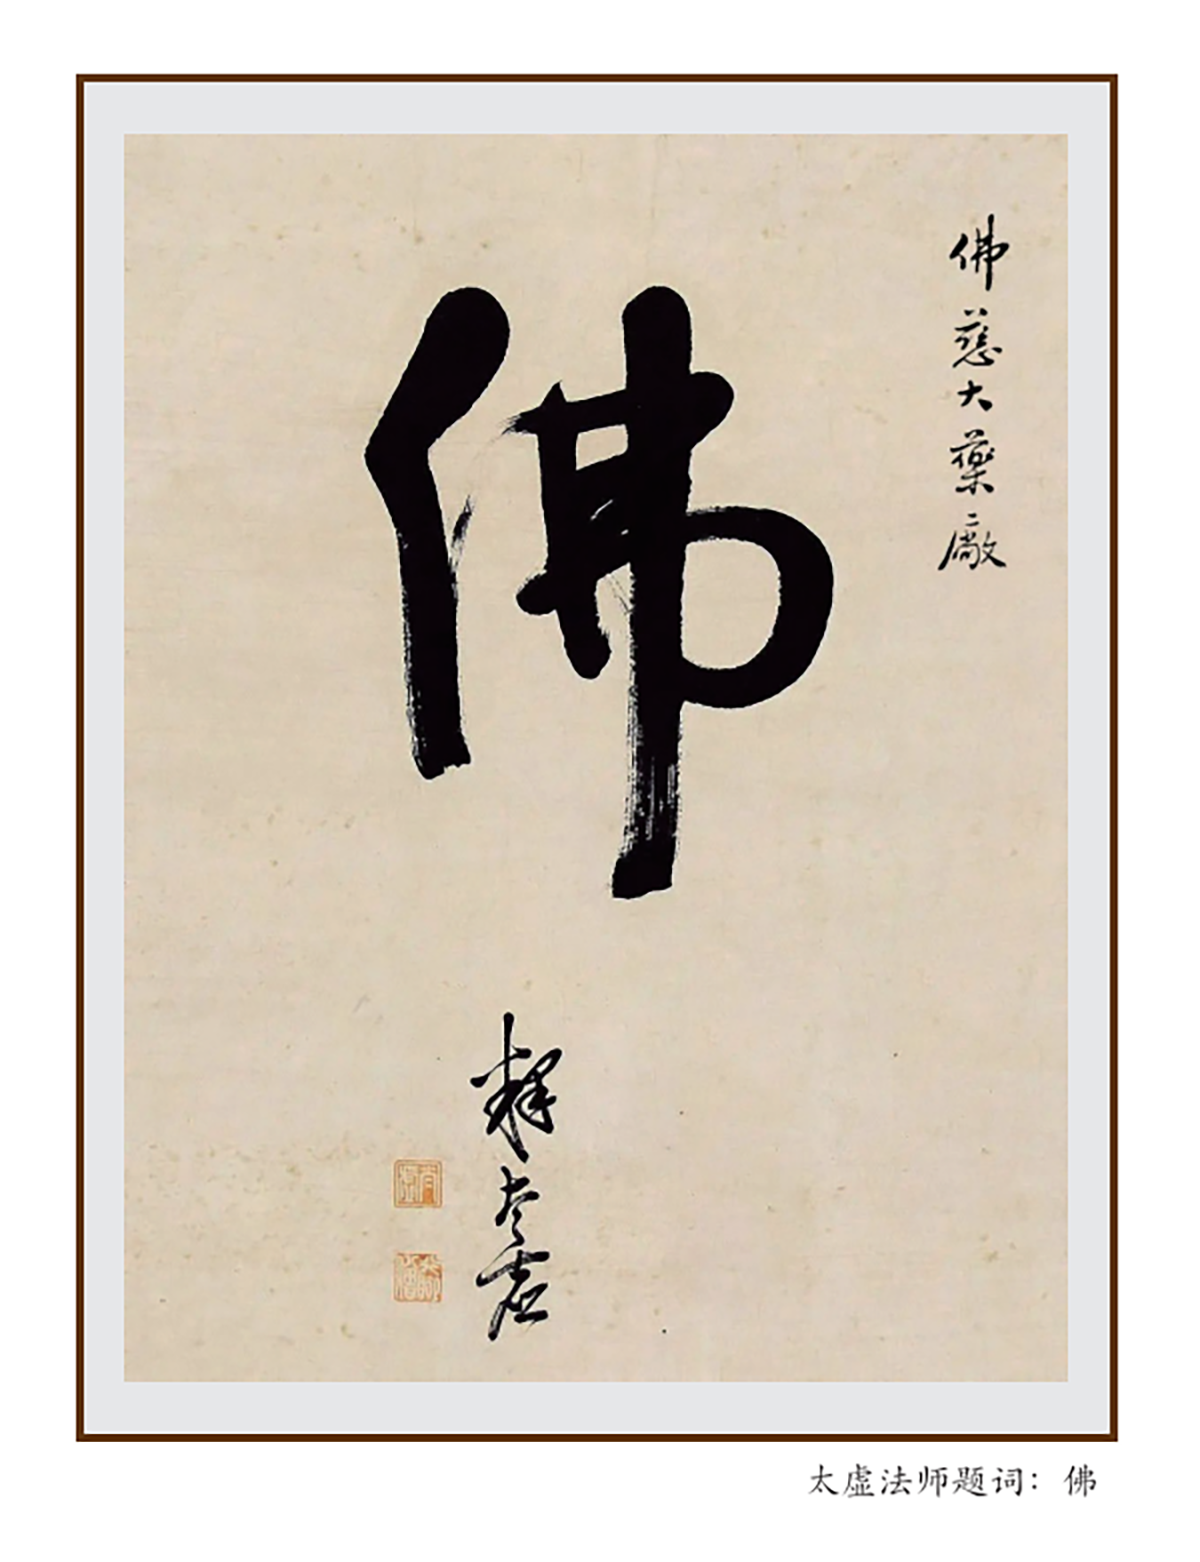 佛慈大藥廠
佛
釋太虛
太虛法师题词：佛